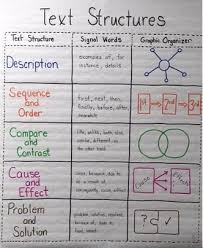 Text Structures
Text Structure
Signal Words
Graphic Organizer
Description
examples of, for
instance, details
Sequence
and
Order
first, next, then,
finally, before, after,
meanwhile
1st
2nd
3rd
Compare
and
Contrast
like, unlike, both, also
similar, different, on
the other hand
Cause
and
Effect
cause, because, due to
as a result of,
consequently, cause, effect
Cause
Effect
Problem
and
Solution
problem, solution, resolved,
because of, leads to
?